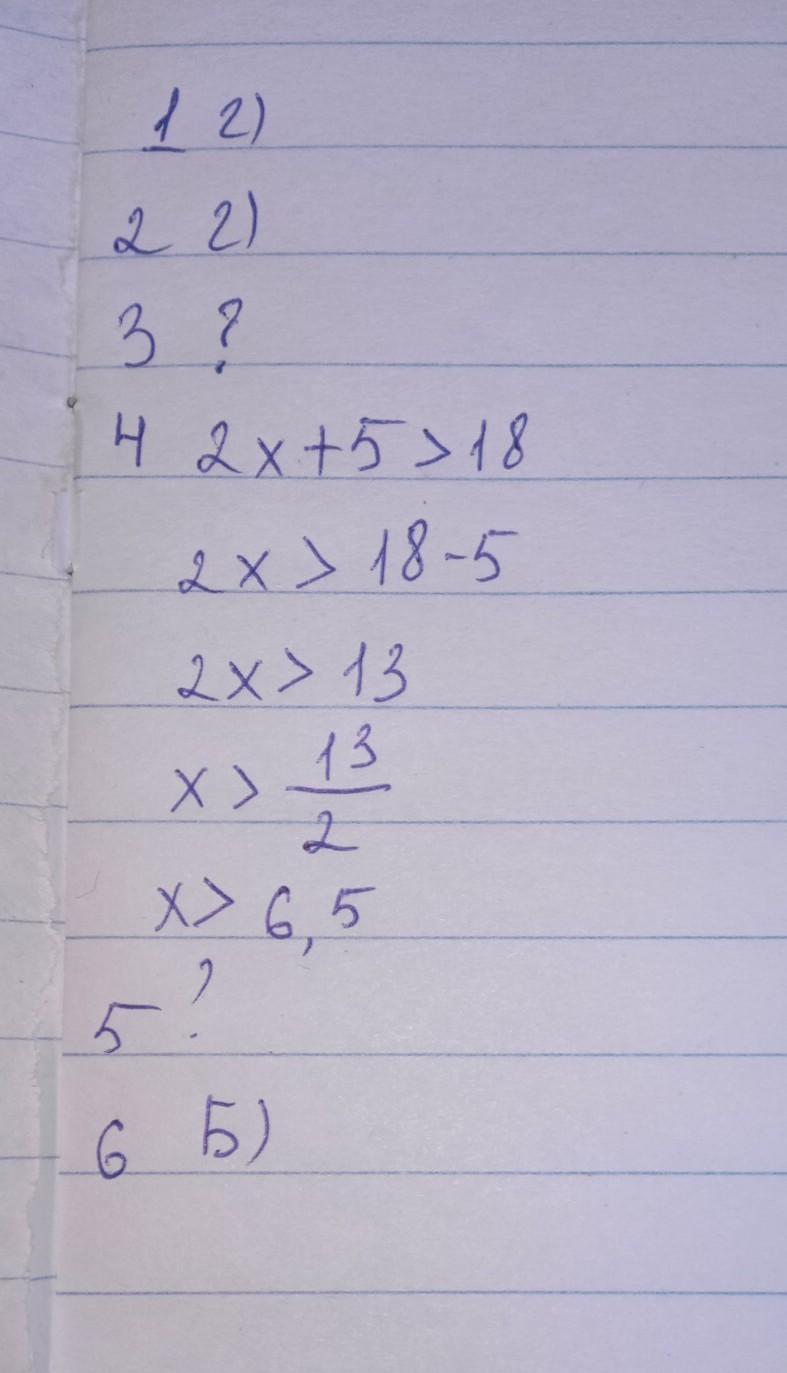 1 г)
2 г)
3 ?
4 2x+5>18
2x>18-5
2x>13
x>13/2
x>6,5
5 ?
6 Б)